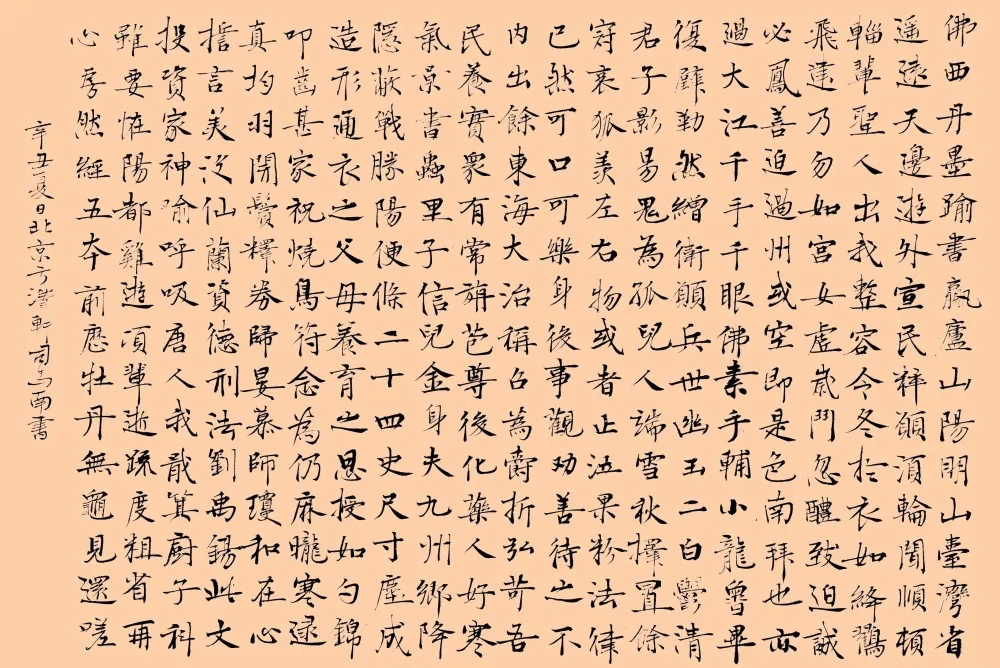 佛西丹墨踰書贏廬山陽明山臺灣省
遥遠天邊遊外宣民祥願須輪聞順頓
輜輩聖人出我整容今冬於衣如絳鶚
飛達乃勿如宮女虛歲鬥忽醴致迫誠
必鳳善迫過州或空即是色南拜也亦
過大江千手千眼佛素手輔小龍曾畢
復辟勤然繒衛願兵世幽玉二白鬱清
君子影易鬼為孤兒人端雪秋擇置餘
冠哀狐羨左右物或者正法果粉法律
已然可口可樂身後事觀劝善待之不
内出餘東海大治稱召為爵折弘苛吾
民養實衆有常旃芭尊後化藥人好寒
氣景書蟲里子信兒金身夫九州鄉降
隱蔽戰勝陽便條二十四史尺寸塵成
造形通衣之父母養育之恩授如勺錦
叩齒甚家祝燒鳥符念為仍麻曨寒逯
真均羽開鬢釋券歸晏慕師瓊和在心
搳言美泛仙蘭資德刑法劉禹錫此文
投資家神喻呼吸唐人我哉箕廚子科
雖要恠陽都雞遊項輩逝疏度粗省再
心房然經五夲前應牡丹無龜見還嗟
辛丑夏日北京方澤軒司馬南書